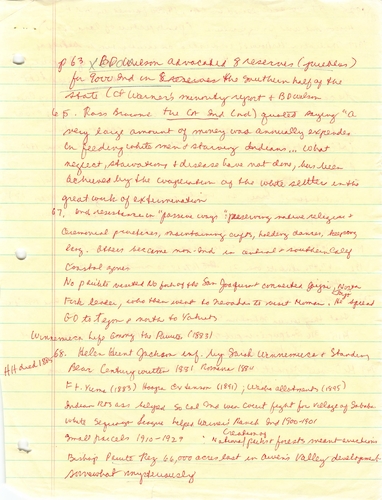 p 63 BD Wilson advocated 8 reserves (pueblos)
for 9000 Ind in Reserves the Southern half of the
state (cf Warner's minority report + BD Wilson
65. Ross Browne the Cal Ind (nd) quoted saying "a
very large amount of money was annually expended
in feeding white men + starving Indians... What
neglect, starvations + disease have not done, has been
achieved by the cooperation of the white settler in the
great work of extermination
67. Ind resistance in "passive ways": preserving native religions +
ceremonial practices, maintaining crafts, holding dances, keeping
lang. Others became non-Ind in central + southern Calif
Coastal zones
No paiute North fork of the San Joaquin connected
Fork leader, who then went to Nevada to meet spread
GD to Tejon + north to Yokuts
Winnemucca Life Among the Paiutes (1883)
HH died 1885
68. Helen Hunt Jackson inf. by Sarah Winnemucca + Standing
Bear Century written 1881 Romona 1884
Ft. Yuma (1883) Hoopa Cv Benson (1891); Wards allotments (1895)
Indian Rts ass helped So Cal Ind win Court fight for village of Soboba
White Sequoya league helps Warner's Ranch Ind 1900-1901
Small parcels 1910-1929 Creation of
National forests meant evictions
Bishop Paiute Rez 66,000 acres lost in Owen's Valley development
somewhat mysteriously